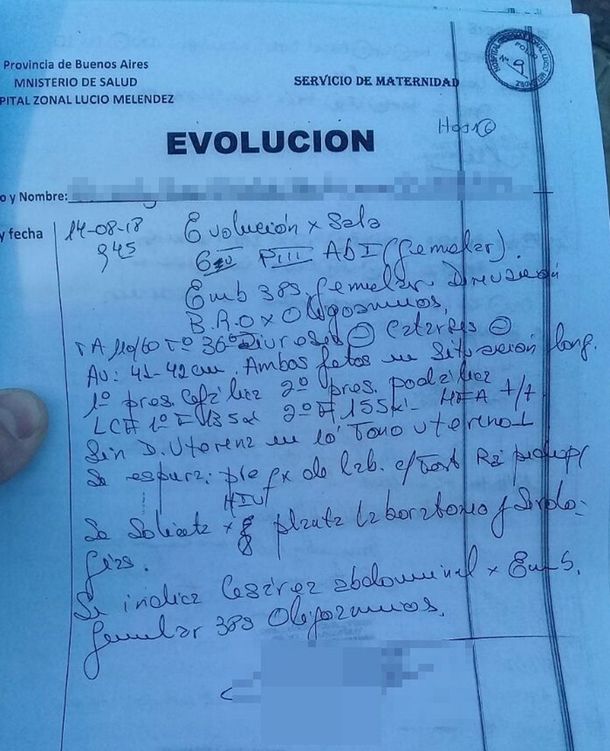 Provincia de Buenos Aires
MNISTERIO DE SALUD
PITAL ZONAL LUCIO MELENDEZ
SERVICIO DE MATERNIDAD
Nº 9
EVOLUCION
o y Nombre:
y fecha
14-08-18
945
Evolución x Sala
PIII AbI (Gemelar).
Emb 38s Gemelar.
B.R.O x Oligoamnios,
TA 110/60 Tº 36º Diuresis ⊖ Catarsis ⊖
AU: 41-42 cm. Ambos fetos en Situación long.
1º pres. Cefálica 2º pres. podálica
LCF 1º F 135x' 2º F 155x' HFA +/+
Sin D. Uterina en 10' Tono uterino
Se espera
HIV
Se Solicita x planta laboratorio y Serolo-
gías.
Se indica Cesárea abdominal x Emb.
Gemelar 38s Oligoamnios.